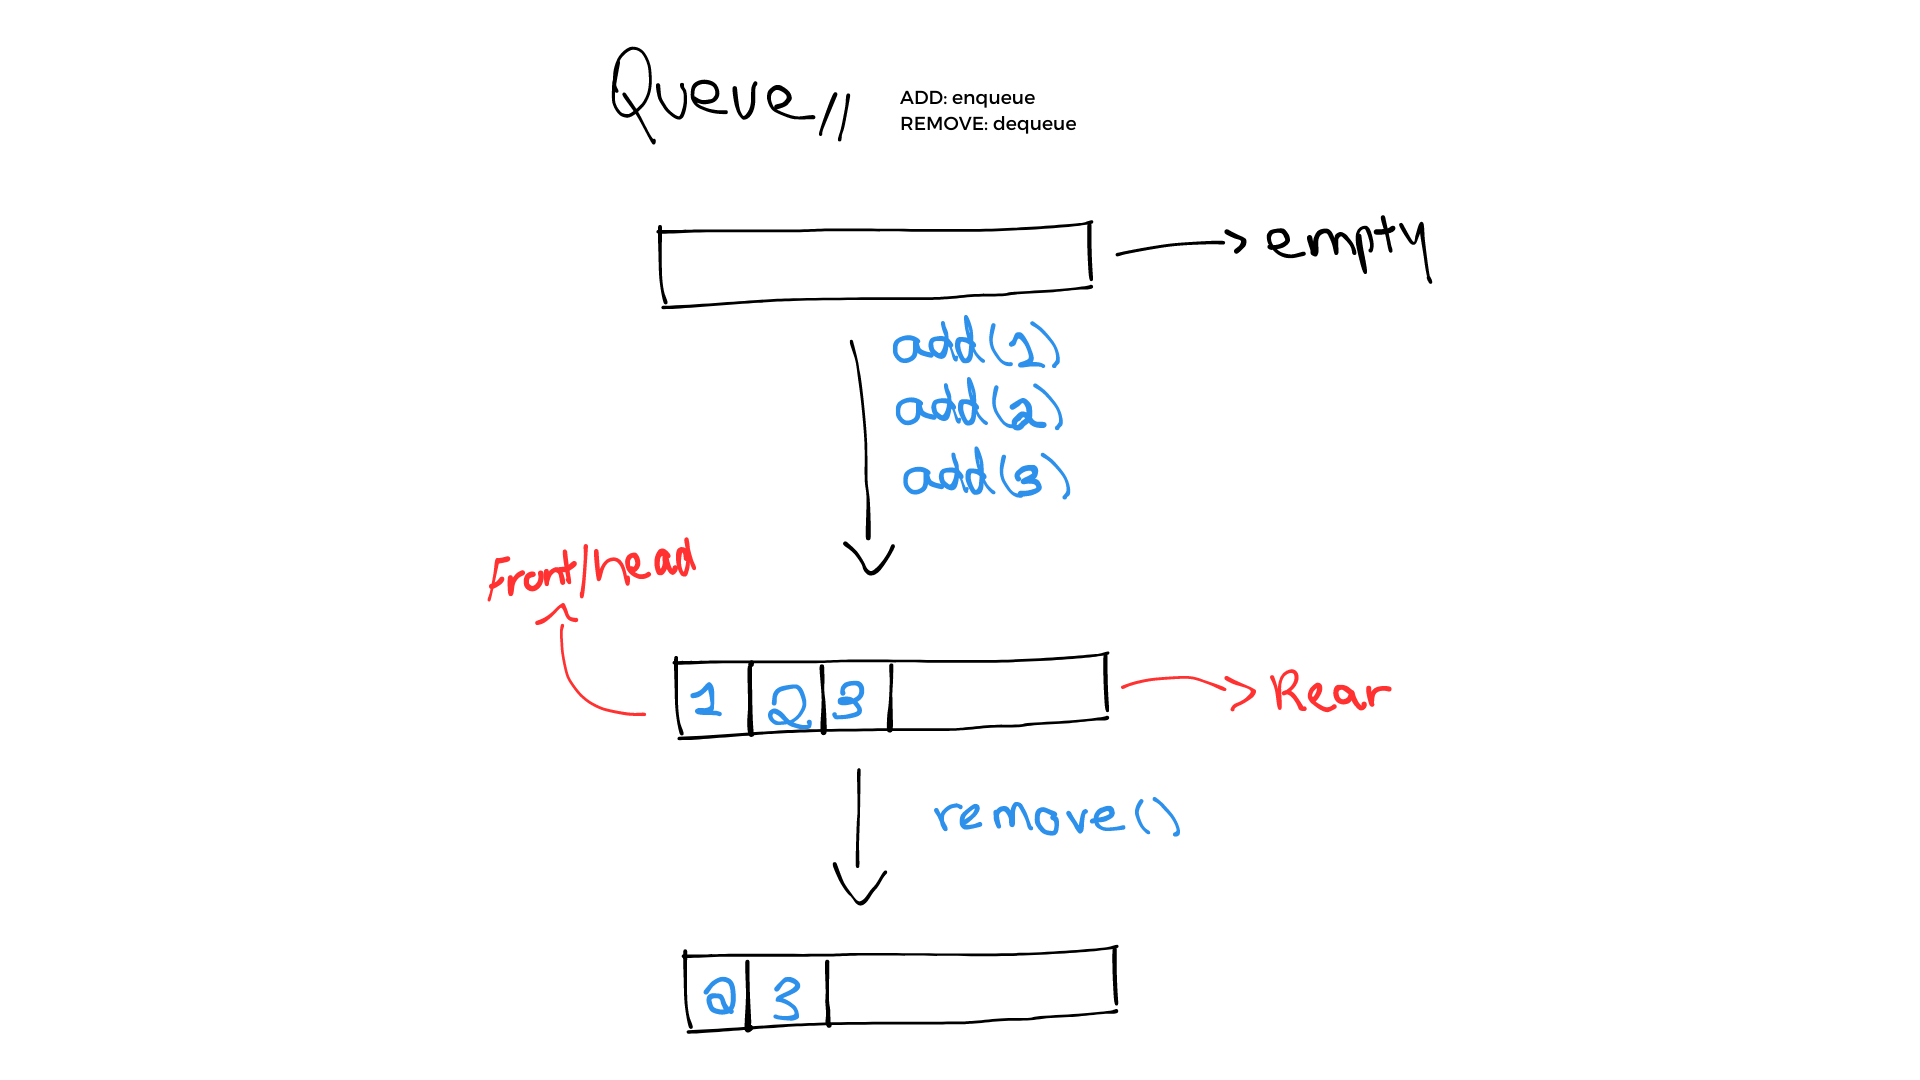 Queue//
ADD: enqueue
REMOVE: dequeue
empty
add(1)
add(2)
add(3)
Front/head
1 2 3
Rear
remove()
2 3